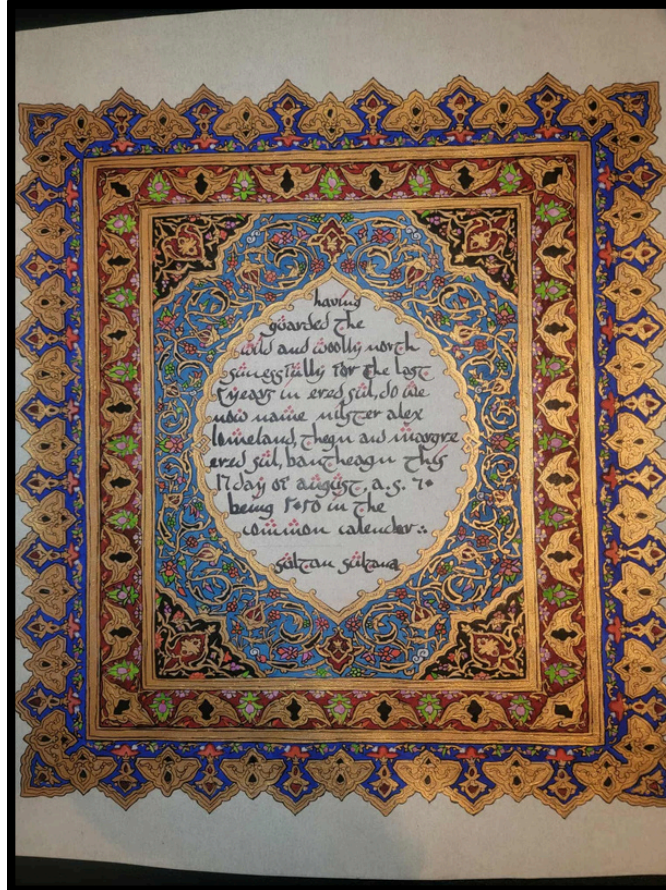 having
guarded the
wild and woolly north
sucessfully for the last
years in ered sul, do we
now name mister alex
loweland, thegn and margre
ered sul, bantheagn this
17 day of august, a.s.
being in the
common calender
sultan sultana